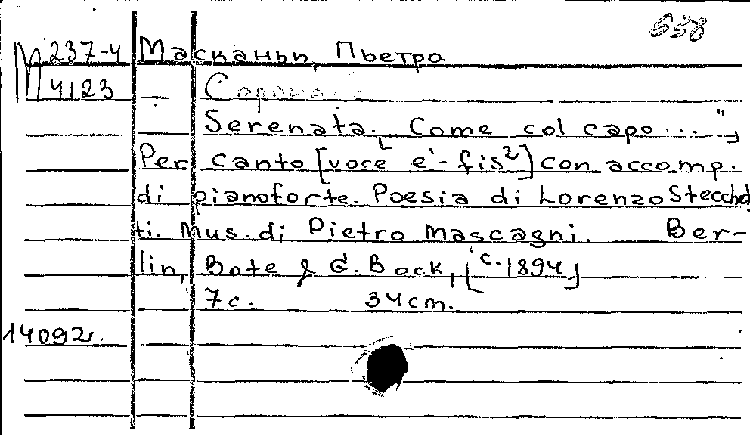 638
М 237-4 Масканьи, Пьетро
4123
Serenata. ["Come col capo..."]
Per canto [voce e'-fis²] con accomp.
di pianoforte. Poesia di Lorenzo Stecchet
ti. Mus. di Pietro Mascagni. Ber-
lin, Bote & G. Bock, [c. 1894]
7 c. 34 cm.
14092г.